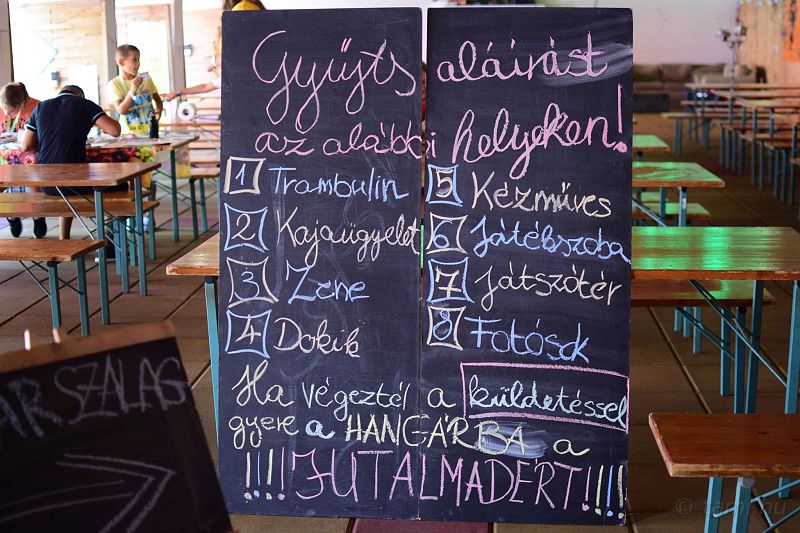 Gyűjts aláírást
az alábbi helyeken!
1 Trambulin
2 Kajaügyelet
3 Zene
4 Dokik
5 Kézműves
6 Játékszoba
7 Játszótér
8 Fotósok
Ha végeztél a küldetéssel
gyere a HANGÁRBA a
!!!! JUTALMADÉRT!!!!
ARSZALAG